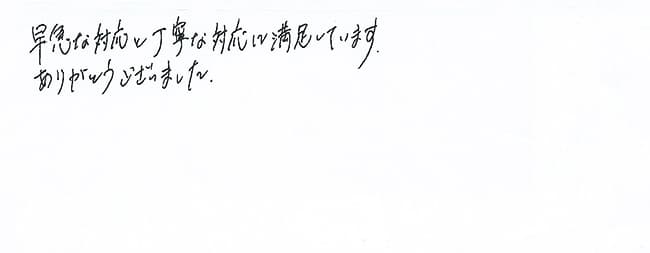 早急な対応と丁寧な対応に満足しています.
ありがとうございました.